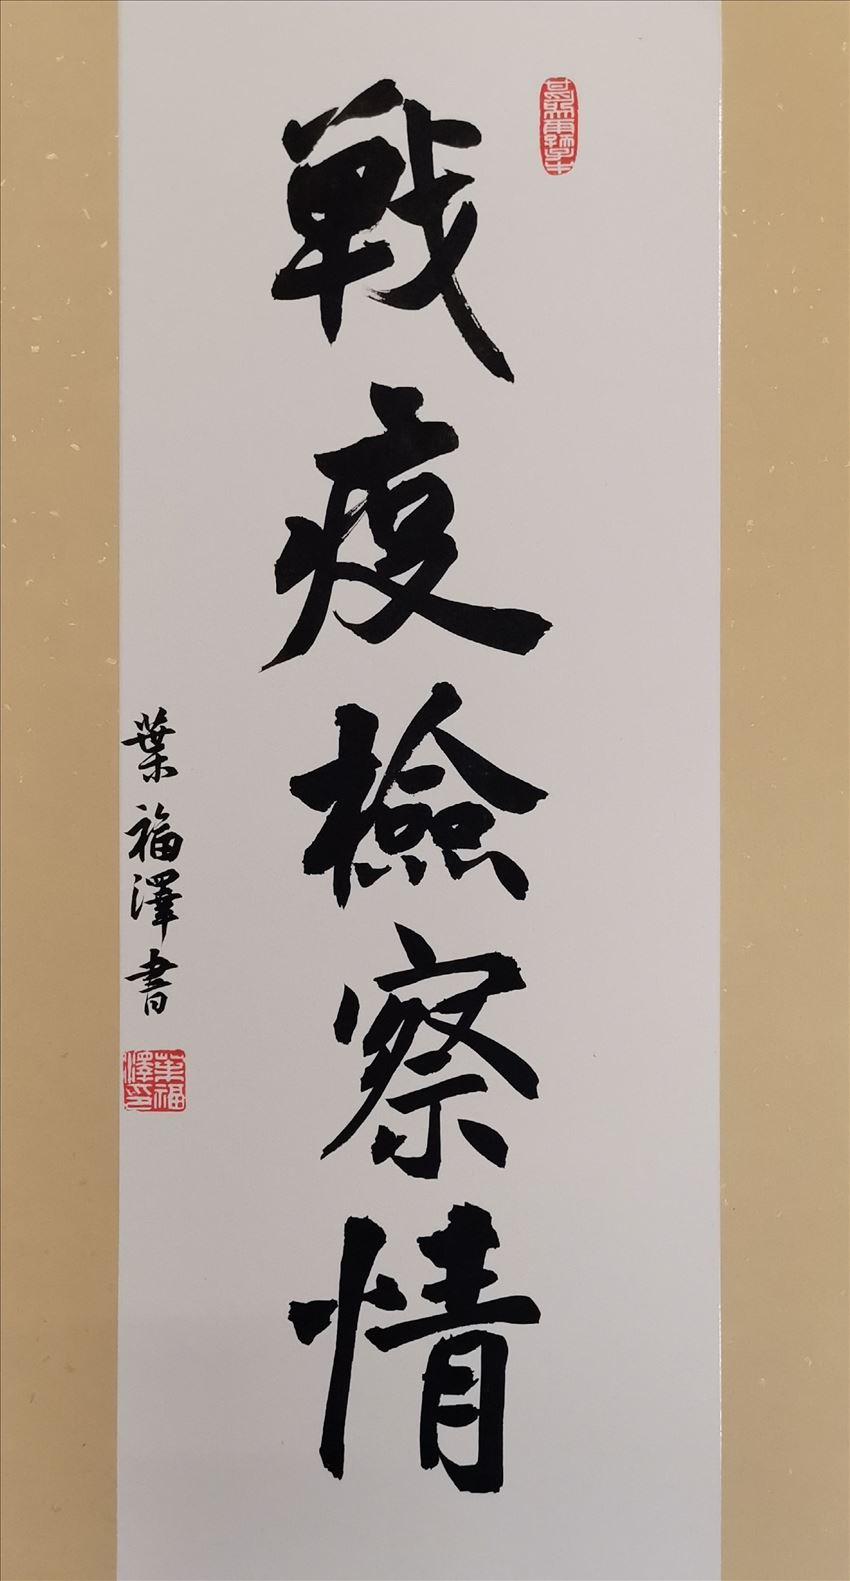 戰疫檢察情
葉福澤書
葉福澤印